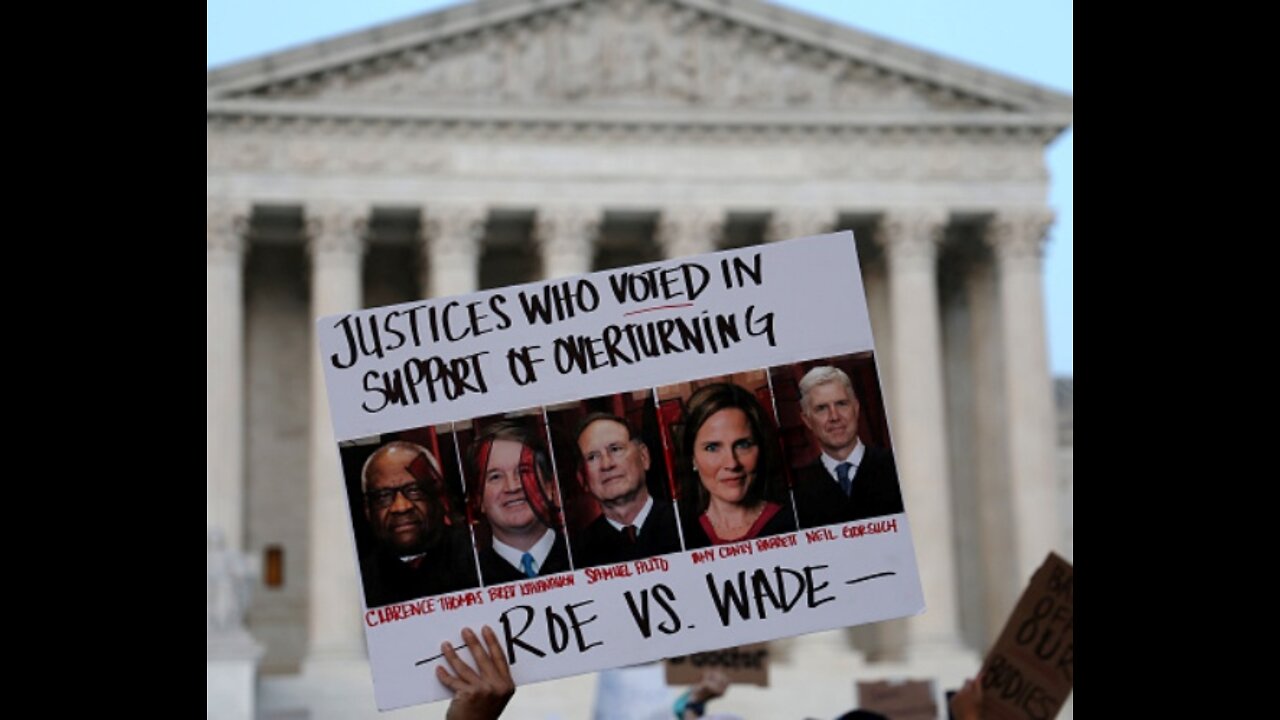 JUSTICES WHO VOTED IN
SUPPORT OF OVERTURNING
CLARENCE THOMAS BRETT KAVANAUGH SAMUEL ALITO AMY CONEY BARRETT NEIL GORSUCH
— ROE VS. WADE —
OFF
OUR
BODIES